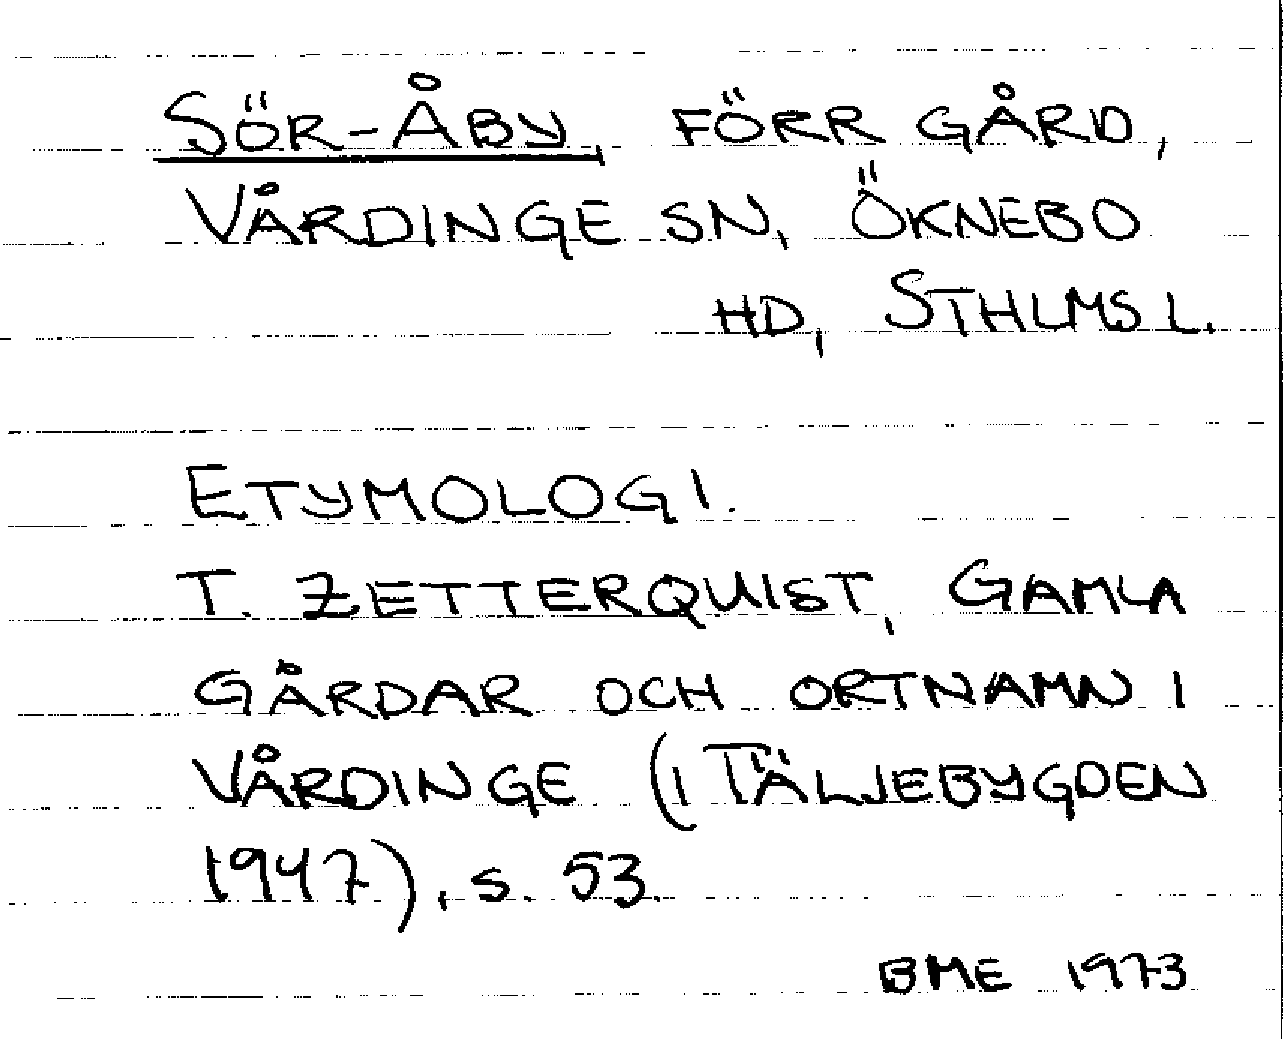 SÖR-ÅBY, FÖRR GÅRD,
VÅRDINGE SN, ÖKNEBO
HD, STHLMS L.
ETYMOLOGI.
T. ZETTERQUIST, GAMLA
GÅRDAR OCH ORTNAMN I
VÅRDINGE (I TÄLJEBYGDEN
1947), s. 53.
BME 1973